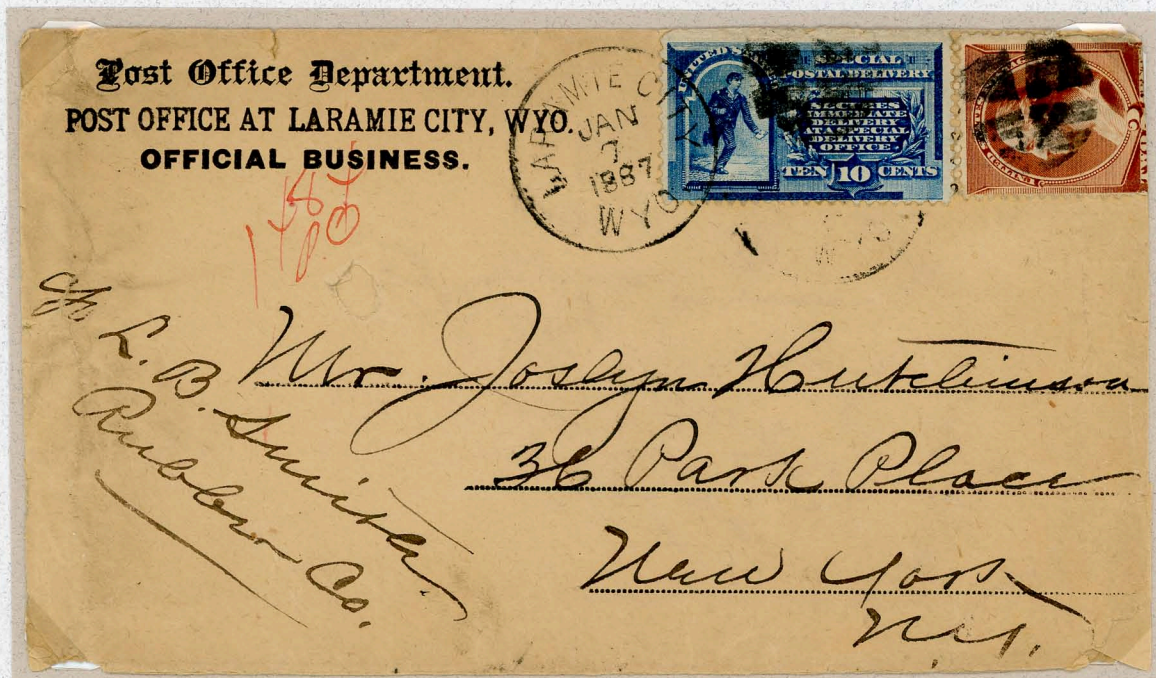 Post Office Department.
POST OFFICE AT LARAMIE CITY, WYO.
OFFICIAL BUSINESS.
LARAMIE CITY
JAN
7
1887
WYO
UNITED STATES
SPECIAL
POSTAL DELIVERY
SECURES
IMMEDIATE
DELIVERY
AT A SPECIAL
DELIVERY
OFFICE.
TEN 10 CENTS
UNITED
WYO
L. B. Smith
Rubber Co.
Mr. Joslyn Hutchinson
36 Park Place
New York
N.Y.